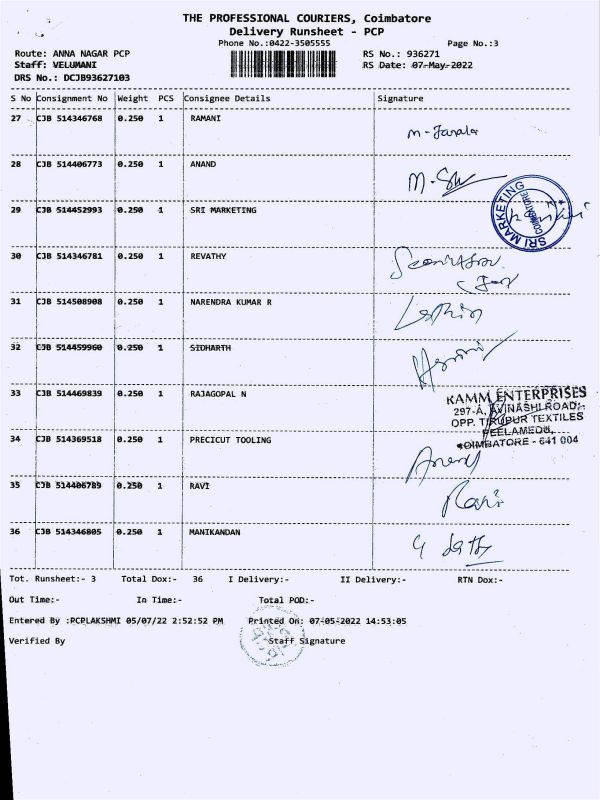 THE PROFESSIONAL COURIERS, Coimbatore
Delivery Runsheet - PCP
Phone No.:0422-3505555 Page No.:3
Route: ANNA NAGAR PCP RS No.: 936271
Staff: VELUMANI RS Date: 07-May-2022
DRS No.: DCJB93627103
S No Consignment No Weight PCS Consignee Details Signature
27 CJB 514346768 0.250 1 RAMANI
28 CJB 514406773 0.250 1 ANAND
29 CJB 514452993 0.250 1 SRI MARKETING
SRI MARKETING COIMBATORE
30 CJB 514346781 0.250 1 REVATHY
31 CJB 514508908 0.250 1 NARENDRA KUMAR R
32 CJB 514459960 0.250 1 SIDHARTH
33 CJB 514469839 0.250 1 RAJAGOPAL N
KAMM ENTERPRISES
297-A, AVINASHI ROAD,
OPP. TIRUPUR TEXTILES
PEELAMEDU,
COIMBATORE - 641 004
34 CJB 514369518 0.250 1 PRECICUT TOOLING
Anand
35 CJB 514406789 0.250 1 RAVI
Ravi
36 CJB 514346805 0.250 1 MANIKANDAN
Tot. Runsheet:- 3 Total Dox:- 36 I Delivery:- II Delivery:- RTN Dox:-
Out Time:- In Time:- Total POD:-
Entered By :PCPLAKSHMI 05/07/22 2:52:52 PM Printed On: 07-05-2022 14:53:05
Verified By Staff Signature